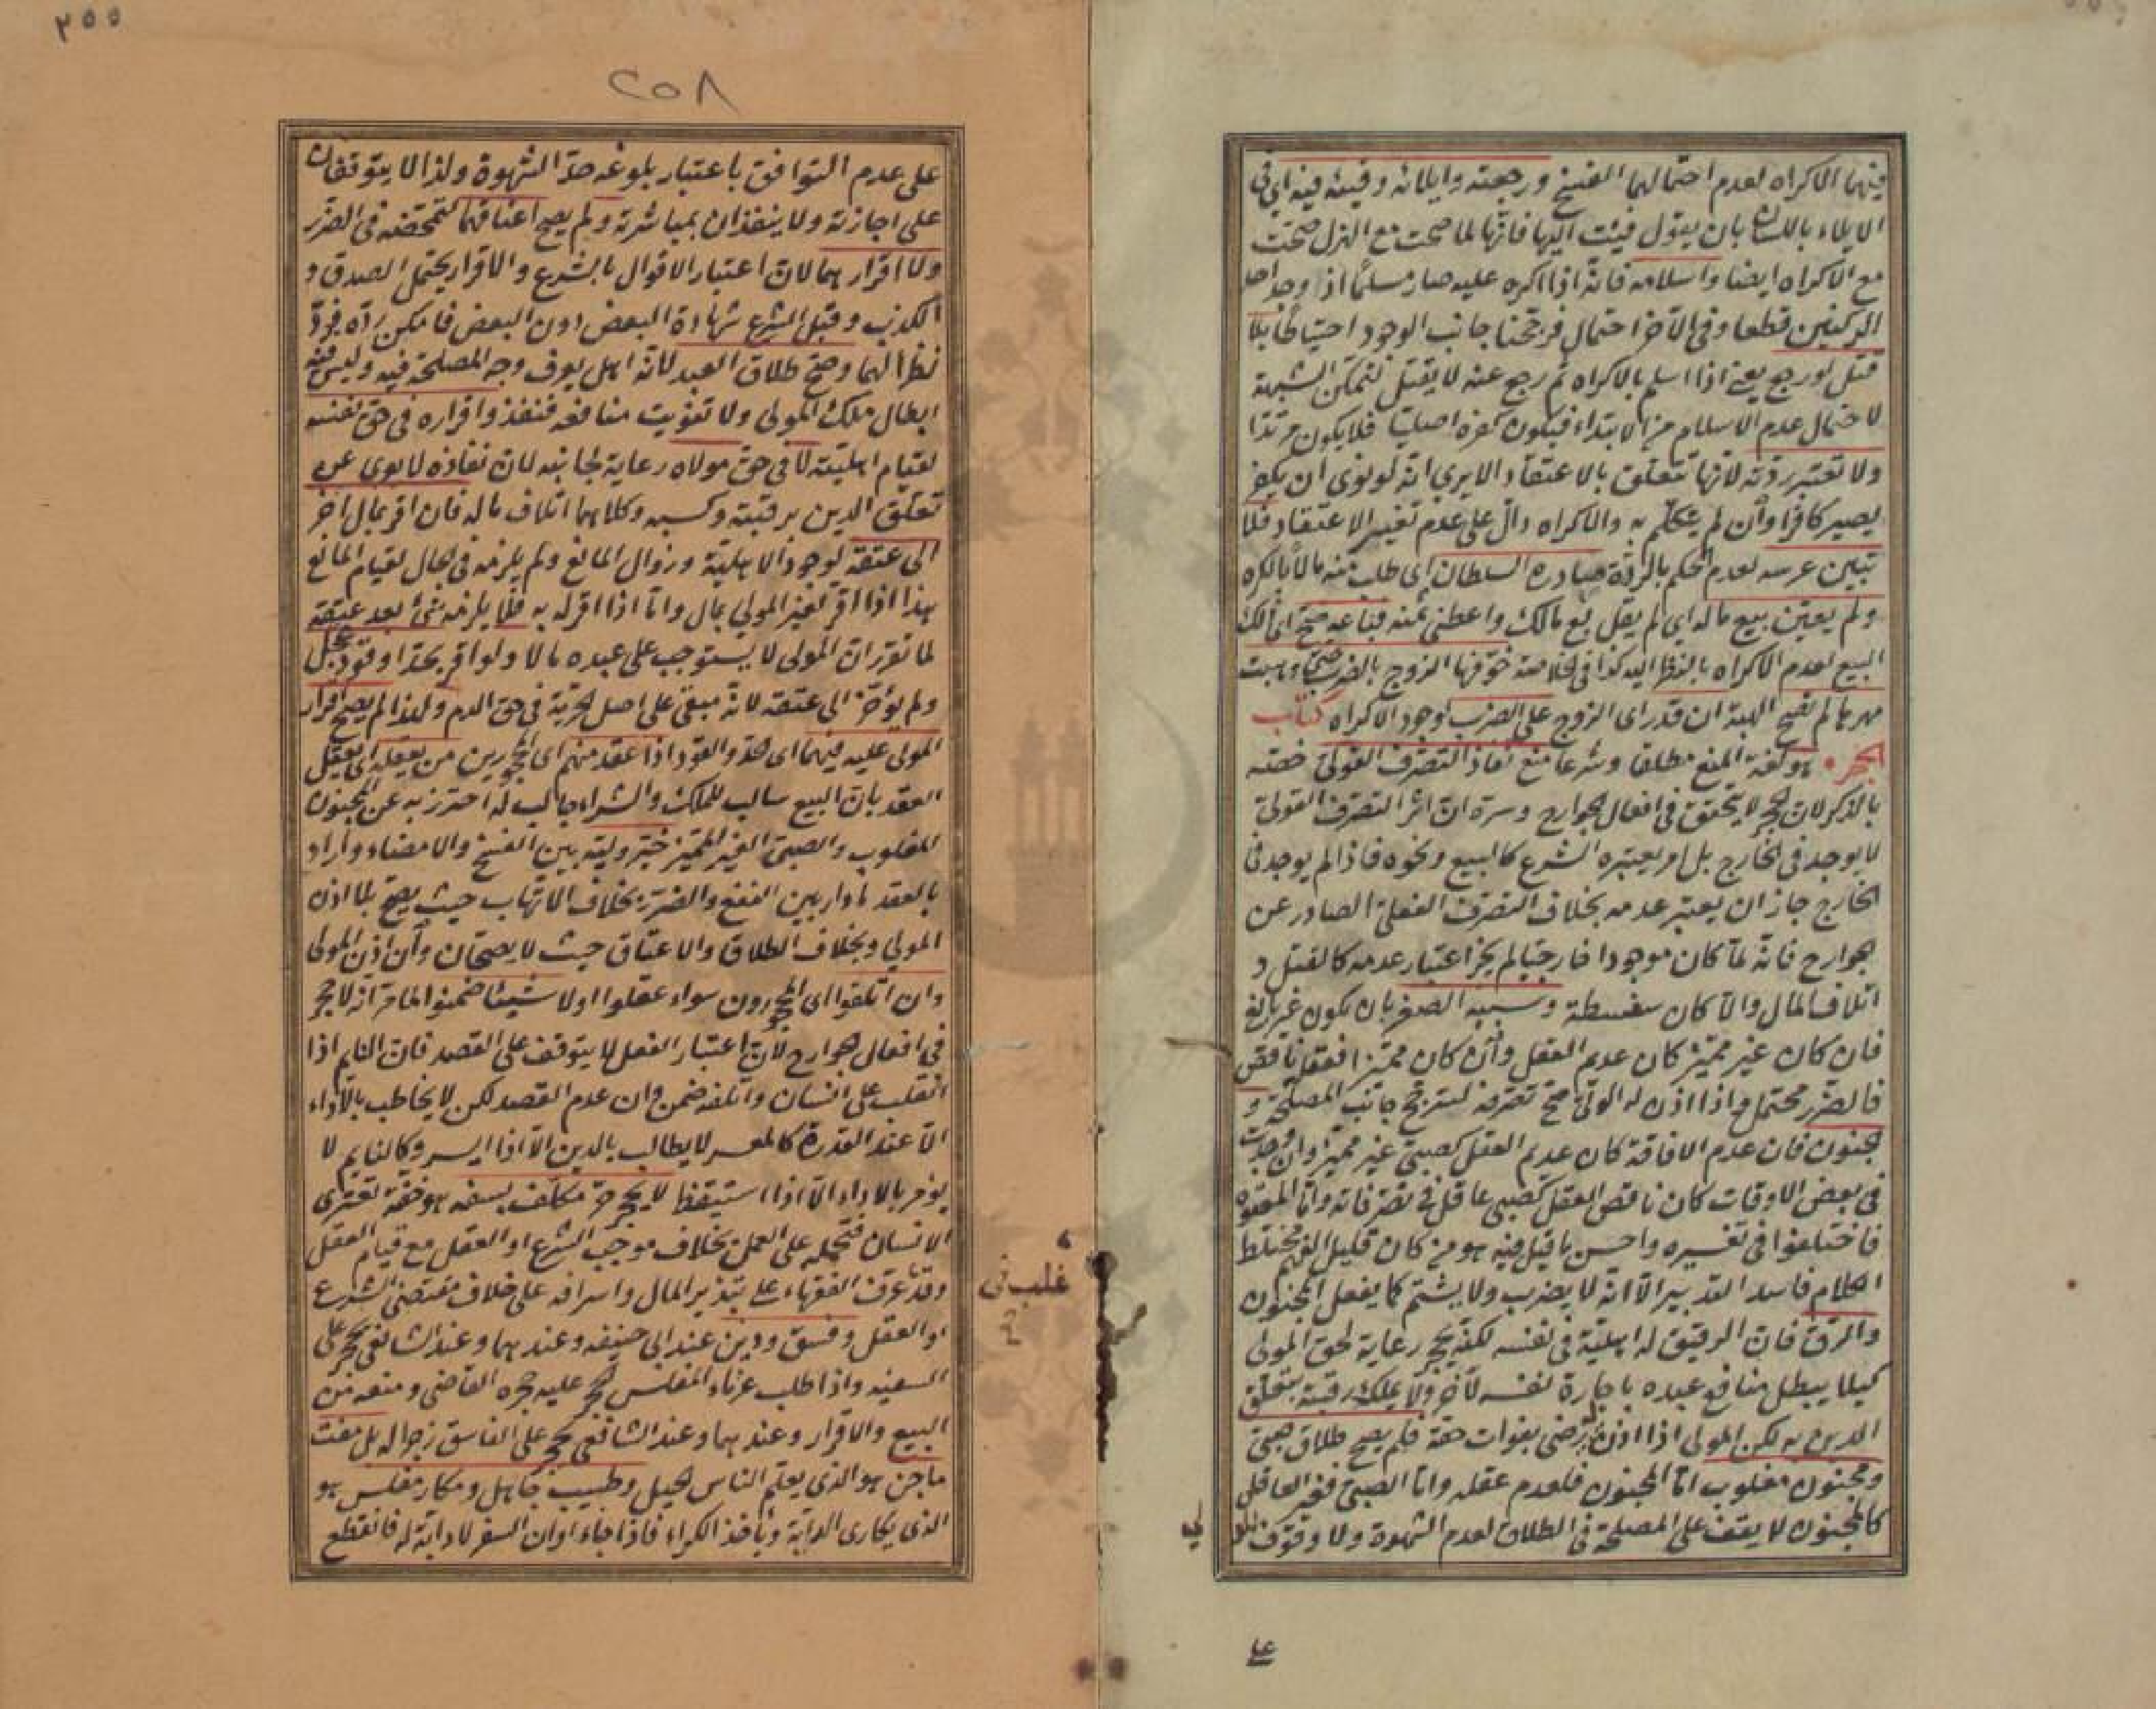 فيهما الاكراه لعدم احتمالهما الفسخ ورجعته وايلائه وفيئه فيه اي في
الايلاء باللسان بان يقول فيئت اليها فانها لما صحت مع الهزل صحت
مع الاكراه ايضا واسلامه فانه اذا اكره عليه صار مسلما اذا وجد احد
الركنين قطعا وفي الآخر احتمال فرجحنا جانب الوجود احتياطا بلا
قتل لو رجع يعني اذا اسلم بالاكراه ثم رجع عنه لا يقتل لتمكن الشبهة
لاحتمال عدم الاسلام من الابتداء فيكون كفره اصليا فلا يكون مرتدا
ولا تعتبر ردته لانها تتعلق بالاعتقاد الا يرى انه لو نوى ان يكفر
يصير كافرا وان لم يتكلم به والاكراه دال على عدم تغيير الاعتقاد فلا
تبين عرسه لعدم الحكم بالردة صادره السلطان اي طلب منه مالا بالكره
ولم يعين بيع ماله اي لم يقل بع مالك واعطني ثمنه فباعه صح اي ذلك
البيع لعدم الاكراه بالنظر اليه كذا في الخلاصة خوفها الزوج بالضرب حتى وهبت
مهرها لم تصح الهبة ان قدر اى الزوج على الضرب لوجود الاكراه كتاب
الحجر هو لغة المنع مطلقا وشرعا منع نفاذ التصرف القولي خصه
بالذكر لان الحجر لا يتحقق في افعال الجوارح وسره ان اثر التصرف القولي
لا يوجد في الخارج بل امر يعتبره الشرع كالبيع ونحوه فاذا لم يوجد في
الخارج جاز ان يعتبر عدمه بخلاف التصرف الفعلي الصادر عن
الجوارح فانه لما كان موجودا خارجيا لم يجز اعتبار عدمه كالقتل و
اتلاف المال والا كان سفسطة وسببه الصغر بان يكون غير بالغ
فان كان غير مميز كان عديم العقل وان كان مميزا فعقله ناقص
فالضرر محتمل واذا اذن له الولي صح تصرفه لترجح جانب المصلحة و
الجنون فان عدم الافاقة كان عديم العقل كصبي غير مميز وان وجدت
في بعض الاوقات كان ناقص العقل كصبي عاقل في تصرفاته واما المعتوه
فاختلفوا في تفسيره واحسن ما قيل فيه هو من كان قليل الفهم مختلط
الكلام فاسد التدبير الا انه لا يضرب ولا يشتم كما يفعل المجنون
والرق فان الرقيق له اهلية في نفسه لكنه يحجر رعاية لحق المولى
كيلا يبطل منافع عبده باجارة نفسه لآخر ولا يملك رقبته بتعلق
الدين به لكن المولى اذا اذن له رضي بفوات حقه فلم يصح طلاق صبي
ومجنون مغلوب اما المجنون فلعدم عقله واما الصبي فغير العاقل
كالمجنون لا يقف على المصلحة في الطلاق لعدم الشهوة ولا وقوف للولي
على
على عدم التوافق باعتبار بلوغه حد الشهوة ولذا لا يتوقفان
على اجازته ولا ينفذان بمباشرته ولم يصح اعتاقهما لتمحضه في الضرر
ولا اقرارهما لان اعتبار الاقوال بالشرع والاقرار يحتمل الصدق و
الكذب وقبل الشرع شهادة البعض دون البعض فامكن رده فرد
نظرا لهما وصح طلاق العبد لانه اهل يعرف وجه المصلحة فيه وليس فيه
ابطال ملك المولى ولا تفويت منافعه فنفذ واقراره في حق نفسه
لقيام اهليته لا في حق مولاه رعاية لجانبه لان نفاذه لا يعرى عن
تعلق الدين برقبته وكسبه وكلاهما اتلاف ماله فان اقر بمال اخر
الى عتقه لوجود الاهلية وزوال المانع ولم يلزمه في الحال لقيام المانع
هذا اذا اقر لغير المولى بمال واما اذا اقر له به فلا يلزمه شئ بعد عتقه
لما تقرر ان المولى لا يستوجب على عبده مالا ولو اقر بحد او قود عجل
ولم يؤخر الى عتقه لانه مبقى على اصل الحرية في حق الدم ولهذا لم يصح اقرار
المولى عليه فيهما اى الحد والقود اذا عقد منهم اى المحجورين من يعقله اى يعقل
العقد بان البيع سالب للملك والشراء جالب له احترز به عن المجنون
المغلوب والصبي الغير المميز خير وليه بين الفسخ والامضاء واراد
بالعقد ما دار بين النفع والضرر بخلاف الاتهاب حيث يصح بلا اذن
المولى وبخلاف الطلاق والاعتاق حيث لا يصحان وان اذن المولى
وان اتلفوا اى المحجورون سواء عقلوا اولا شيئا ضمنوا لما مر انه لا حجر
في افعال الجوارح لان اعتبار الفعل لا يتوقف على القصد فان النائم اذا
انقلب على انسان واتلفه ضمن وان عدم القصد لكن لا يخاطب بالاداء
الا عند القدرة كالمعسر لا يطالب بالدين الا اذا ايسر وكالنايم لا
يؤمر بالاداء الا اذا استيقظ لا يحجر حر مكلف بسفه هو خفة تعترى
الانسان فتحمله على العمل بخلاف موجب الشرع او العقل مع قيام العقل
وقد عرف الفقهاء على تبذير المال واسرافه على خلاف مقتضى الشرع
او العقل وفسق ودين عند ابي حنيفه وعندهما وعند الشافعي يحجر على
السفيه واذا طلب غرماء المفلس الحجر عليه حجره القاضي ومنعه من
البيع والاقرار وعندهما وعند الشافعي يحجر على الفاسق زجرا له بل مفت
ماجن هو الذي يعلم الناس الحيل وطبيب جاهل ومكار مفلس هو
الذي يكارى الدابة ويأخذ الكراء فاذا جاء اوان السفر لا دابة له فانقطع
غلب في
٢٥٥
٢٥٨